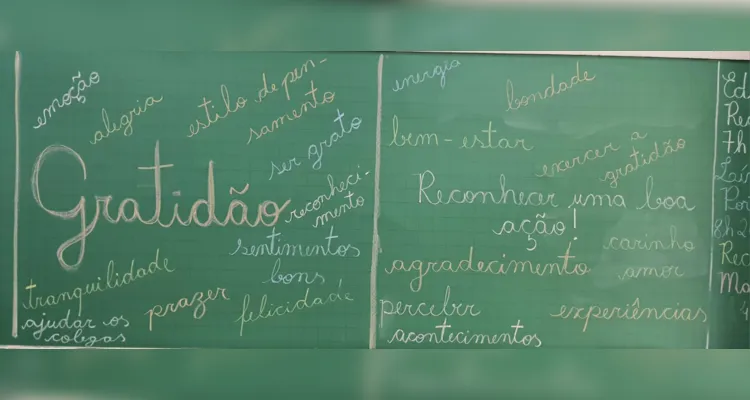 emoção
alegria
estilo de pen-
samento
ser grato
Gratidão
reconheci-
mento
sentimentos
bons
tranquilidade
prazer
felicidade
ajudar os
colegas
energia
bondade
bem-estar
exercer a
gratidão
Reconhecer uma boa
ação!
carinho
agradecimento
amor
perceber
experiências
acontecimentos
7h